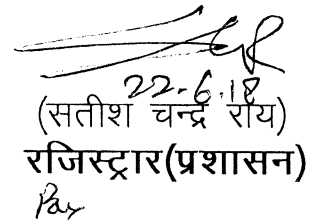 22.6.18
(सतीश चन्द्र राय)
रजिस्ट्रार(प्रशासन)